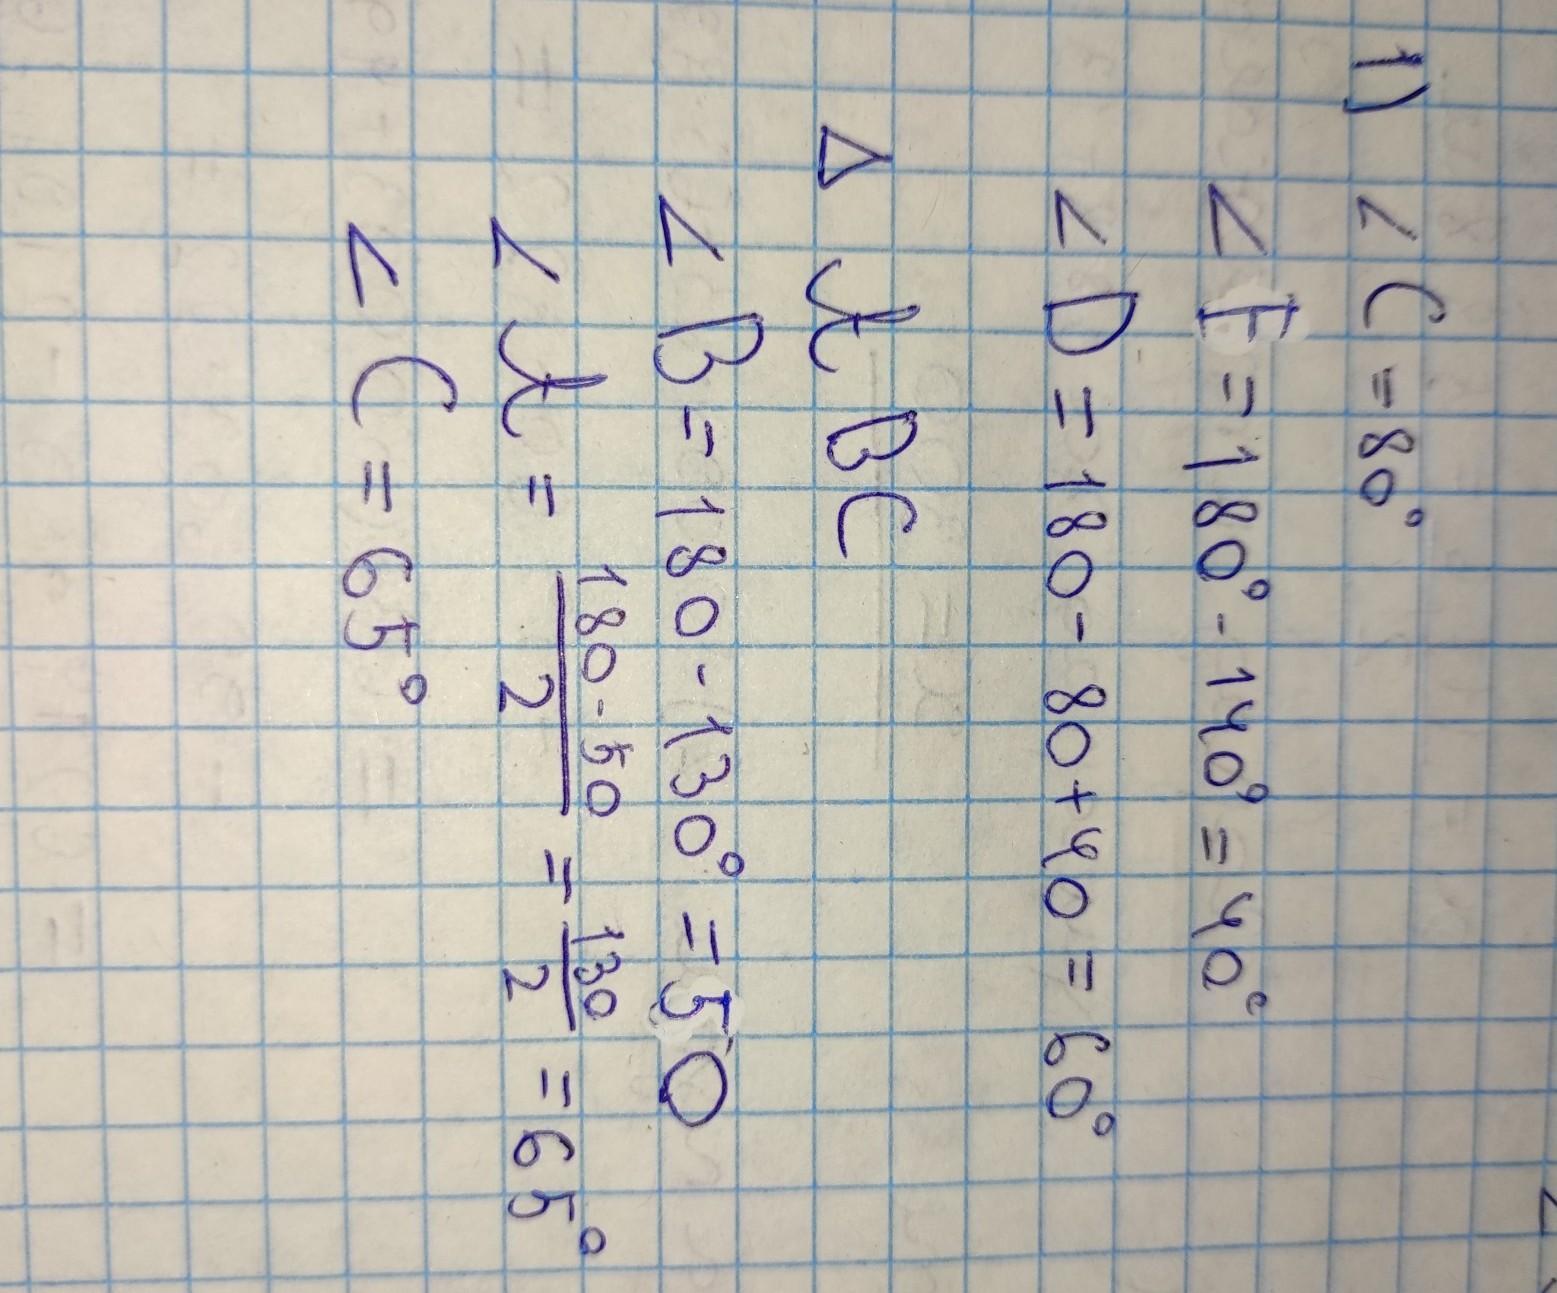 1)
∠C = 80°
∠E = 180° - 140° = 40°
∠D = 180 - 80 + 40 = 60°
△ ABC
∠B = 180 - 130° = 50
∠A = \frac{180-50}{2} = \frac{130}{2} = 65°
∠C = 65°